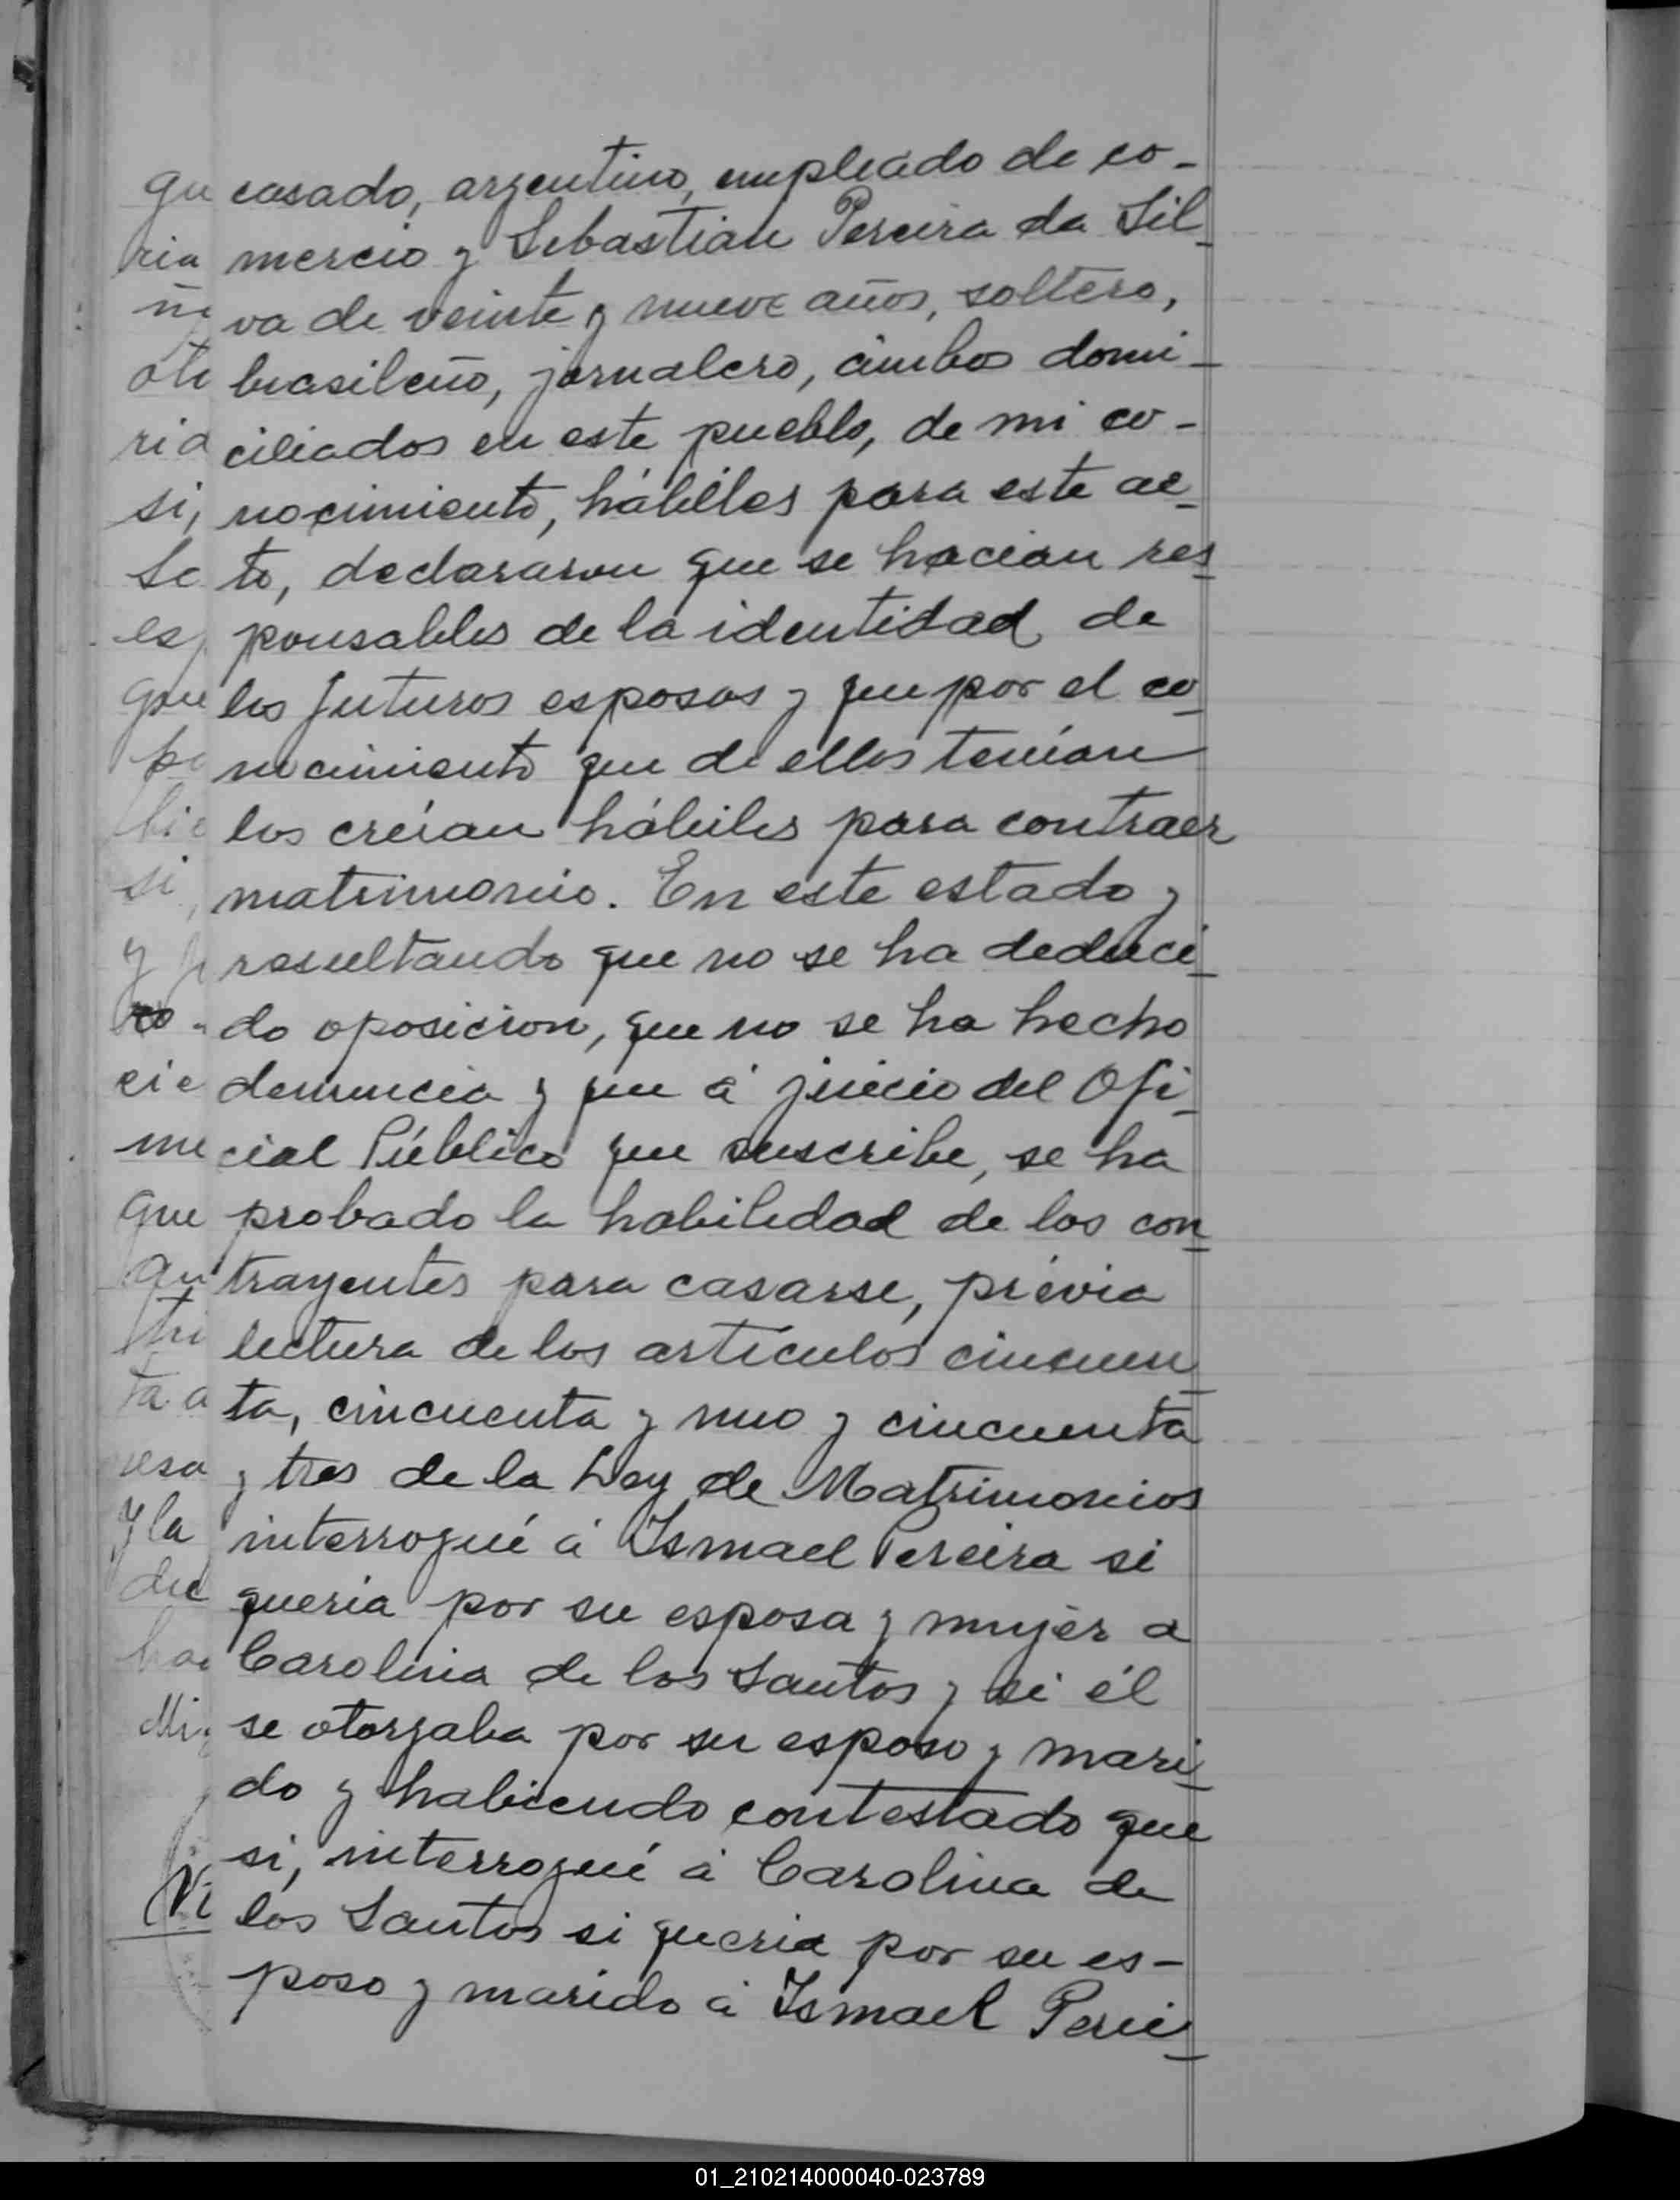 casado, argentino, empleado de co-
mercio y Sebastian Pereira da Sil-
va de veinte y nueve años, soltero,
brasileño, jornalero, ámbos domi-
ciliados en este pueblo, de mi co-
nocimiento, hábiles para este ac-
to, declararon que se hacian res-
ponsables de la identidad de
los futuros esposos y que por el co-
nocimiento que de ellos tenían
los creían hábiles para contraer
matrimonio. En este estado y
resultando que no se ha deduci-
do oposicion, que no se ha hecho
denuncia y que á juicio del Ofi-
cial Público que suscribe, se ha
probado la habilidad de los con-
trayentes para casarse, prévia
lectura de los artículos cincuen-
ta, cincuenta y uno y cincuenta
y tres de la Ley de Matrimonios
interrogué á Ismael Pereira si
queria por su esposa y mujer a
Carolina de los Santos y si él
se otorgaba por su esposo y mari-
do y habiendo contestado que
si, interrogué á Carolina de
los Santos si queria por su es-
poso y marido á Ismael Perei-
01_210214000040-023789